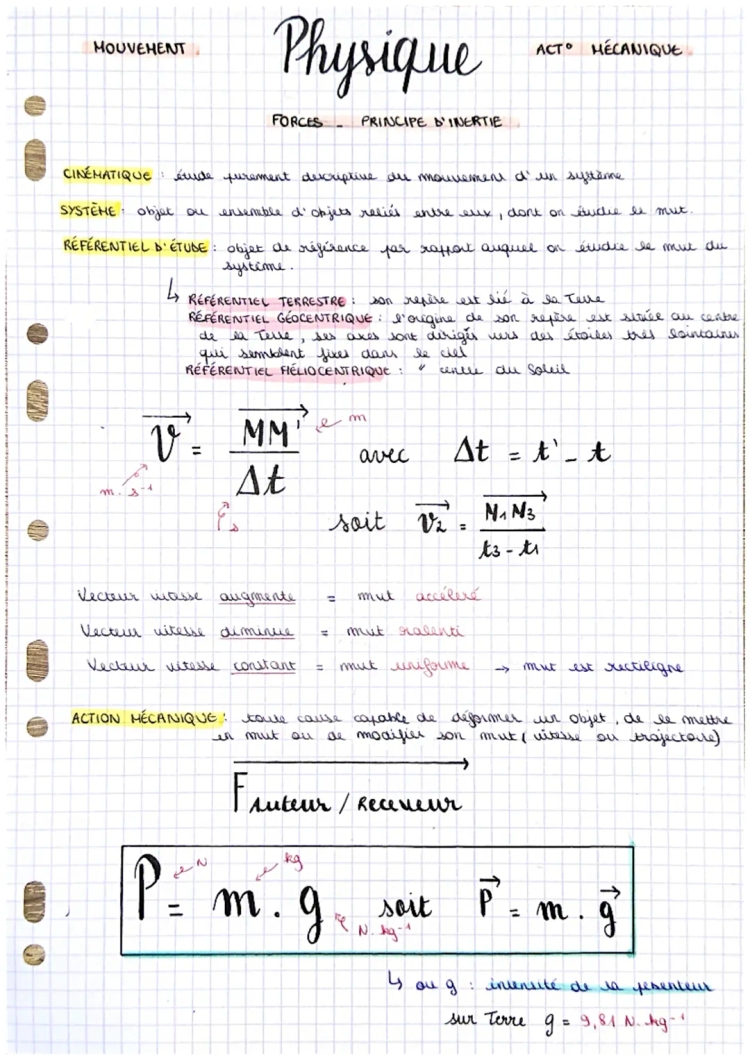 MOUVEMENT
Physique
ACT° MÉCANIQUE
FORCES - PRINCIPE D'INERTIE
CINÉMATIQUE : étude purement descriptive du mouvement d'un système
SYSTÈME : objet ou ensemble d'objets reliés entre eux, dont on étudie le mvt.
RÉFÉRENTIEL D'ÉTUDE : objet de référence par rapport auquel on étudie le mvt du
système.
↳ RÉFÉRENTIEL TERRESTRE : son repère est lié à la Terre
RÉFÉRENTIEL GÉOCENTRIQUE : l'origine de son repère est située au centre
de la Terre, ses axes sont dirigés vers des étoiles très lointaines
qui semblent fixes dans le ciel
RÉFÉRENTIEL HÉLIOCENTRIQUE : " centre du Soleil
V = MM' / Δt avec Δt = t' - t
m
m.s⁻¹
s
soit V₂ = M₁M₃ / t₃ - t₁
Vecteur vitesse augmente = mvt accéléré
Vecteur vitesse diminue = mvt ralenti
Vecteur vitesse constant = mvt uniforme → mvt est rectiligne
ACTION MÉCANIQUE : toute cause capable de déformer un objet, de le mettre
en mvt ou de modifier son mvt (vitesse ou trajectoire)
F auteur / Receveur
P = m . g soit P⃗ = m . g⃗
N
kg
N.kg⁻¹
↳ ou g : intensité de la pesanteur
sur Terre g = 9,81 N.kg⁻¹